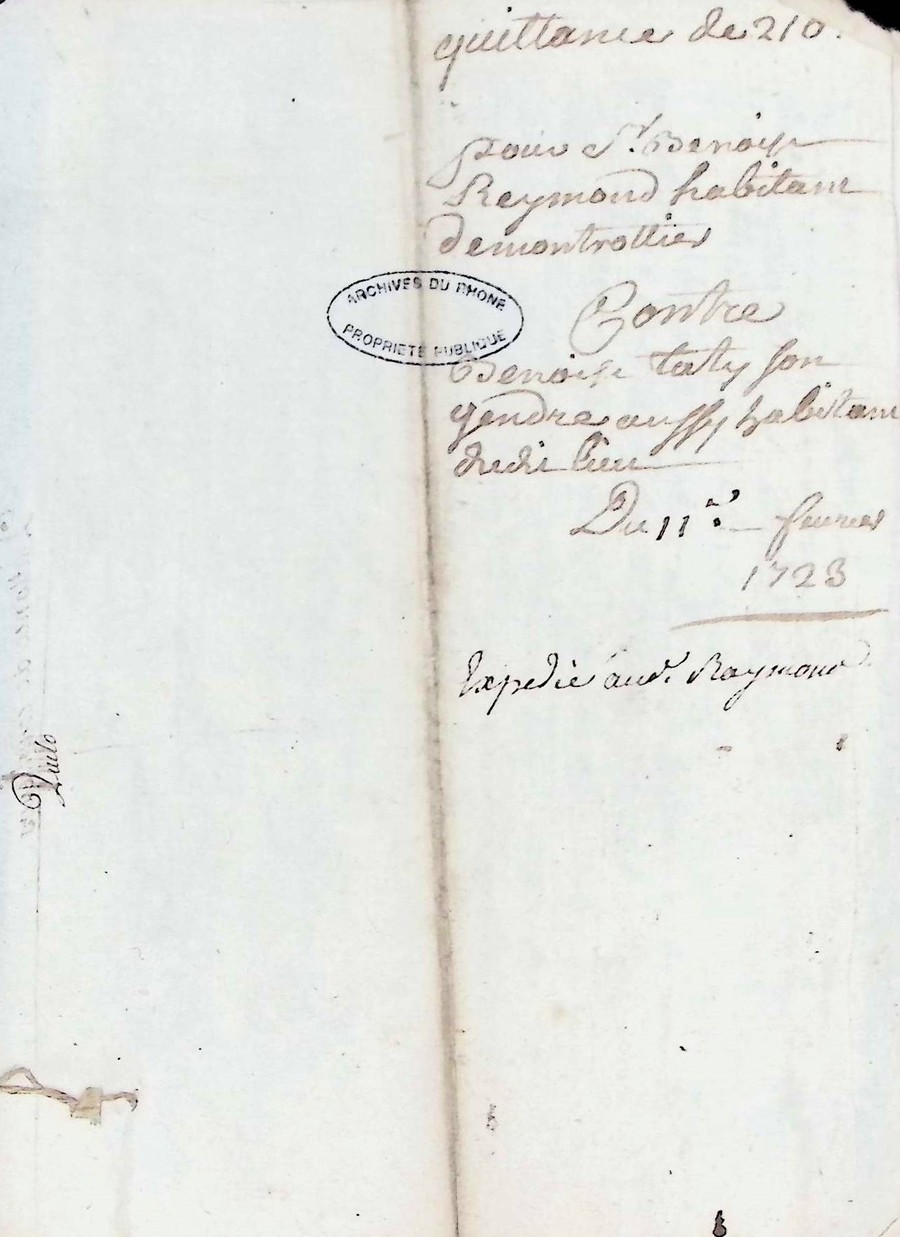 quittance de 210.
pour Sr. Benoist
Reymond habitant
de montrottier
ARCHIVES DU RHONE
PROPRIETE PUBLIQUE
Contre
Benoist taty son
gendre aussy habitant
dudit lieu
Du 11e. fevrier
1723
Expedié aud. Raymond